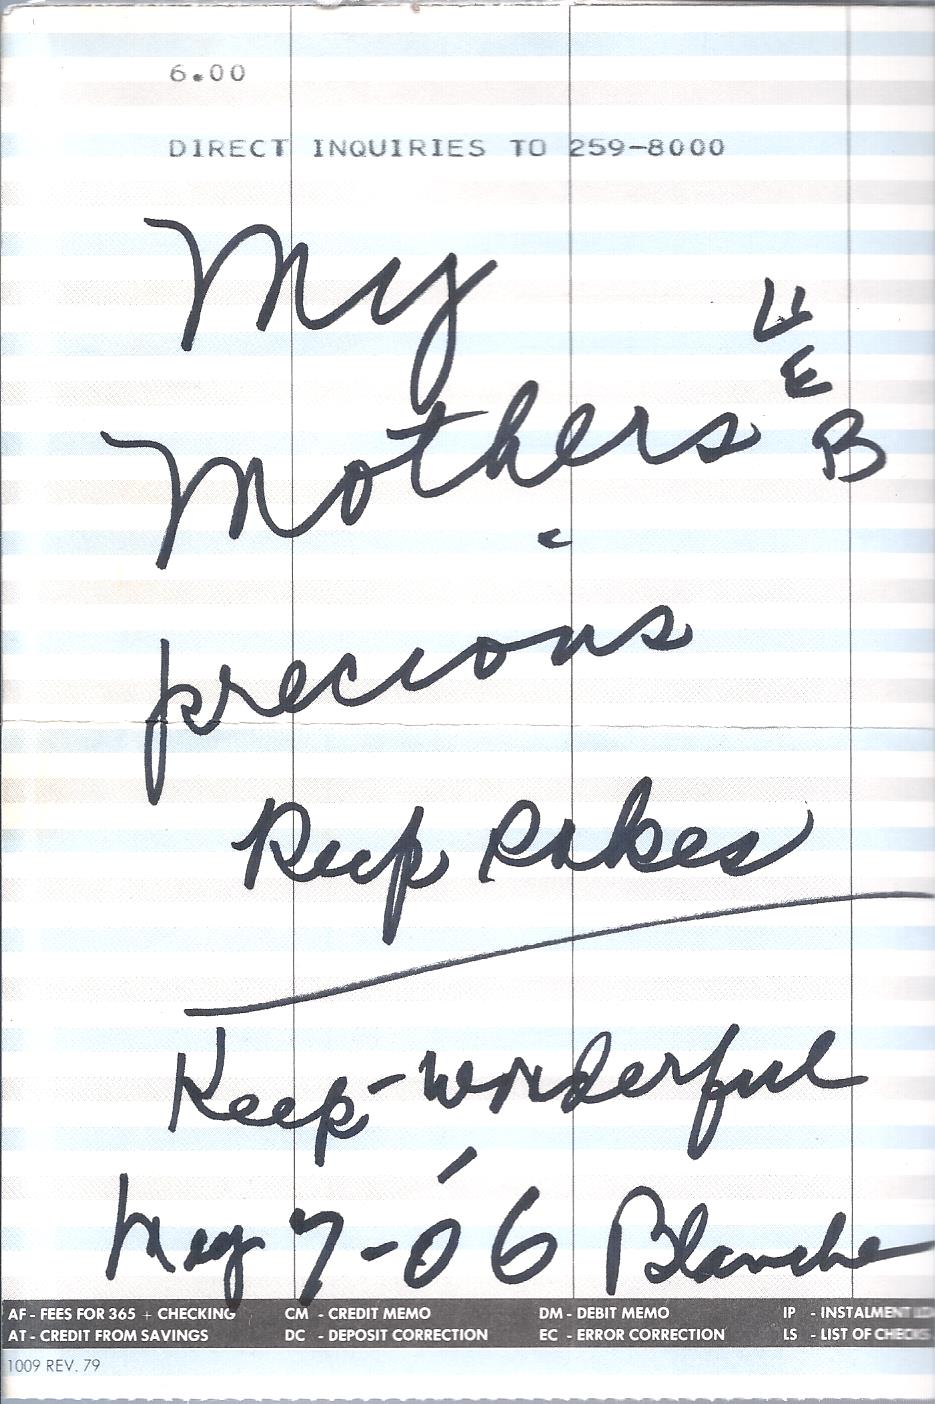 6.00
DIRECT INQUIRIES TO 259-8000
My
Mothers
LEB
precious
Keep sakes
Keep - wonderful
May 7-06 Blanche
AF - FEES FOR 365 + CHECKING CM - CREDIT MEMO DM - DEBIT MEMO IP - INSTALMENT
AT - CREDIT FROM SAVINGS DC - DEPOSIT CORRECTION EC - ERROR CORRECTION LS - LIST OF CHECKS
1009 REV. 79